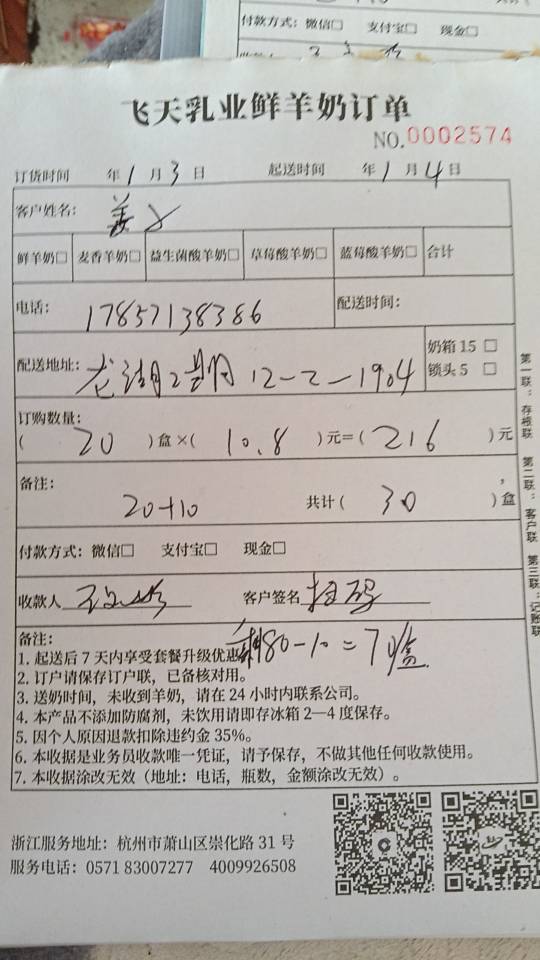 付款方式：微信□ 支付宝□ 现金□
飞天乳业鲜羊奶订单
NO.0002574
订货时间 年1月3日 起送时间 年1月4日
客户姓名：姜
鲜羊奶□ 麦香羊奶□ 益生菌酸羊奶□ 草莓酸羊奶□ 蓝莓酸羊奶□ 合计
电话：17857138386 配送时间：
配送地址：龙湖2期 12-2-1904
奶箱15 □
锁头5 □
订购数量：
(20)盒×(10.8)元=(216)元
备注：
20+10 共计(30)盒
付款方式：微信□ 支付宝□ 现金□
收款人 客户签名 扫码
剩80-10=70盒
备注：
1. 起送后7天内享受套餐升级优惠
2. 订户请保存订户联，已备核对用。
3. 送奶时间，未收到羊奶，请在24小时内联系公司。
4. 本产品不添加防腐剂，未饮用请即存冰箱2—4度保存。
5. 因个人原因退款扣除违约金35%。
6. 本收据是业务员收款唯一凭证，请予保存，不做其他任何收款使用。
7. 本收据涂改无效（地址：电话，瓶数，金额涂改无效）。
浙江服务地址：杭州市萧山区崇化路31号
服务电话：0571 83007277 4009926508
第一联：存根联 第二联：客户联 第三联：记账联